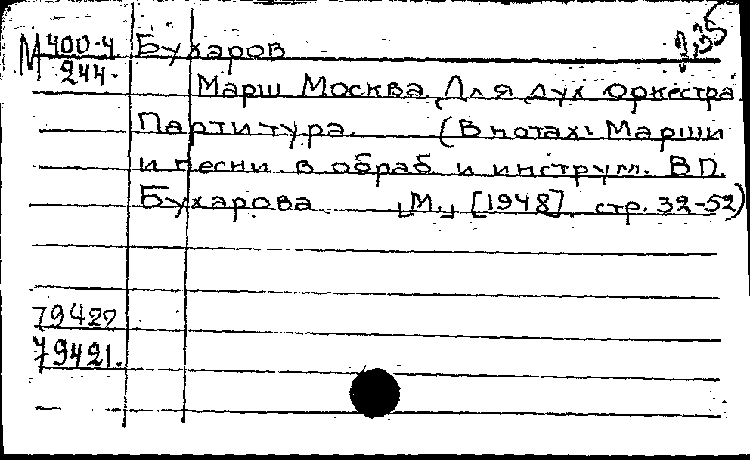 М 400-4 Бухаров 7,35
244.
Марш Москва. Для дух оркестра.
Партитура. (В нотах: Марши
и песни в обраб и инструм. В П.
Бухарова [М.] [1948] стр. 32-52)
79422
79421.